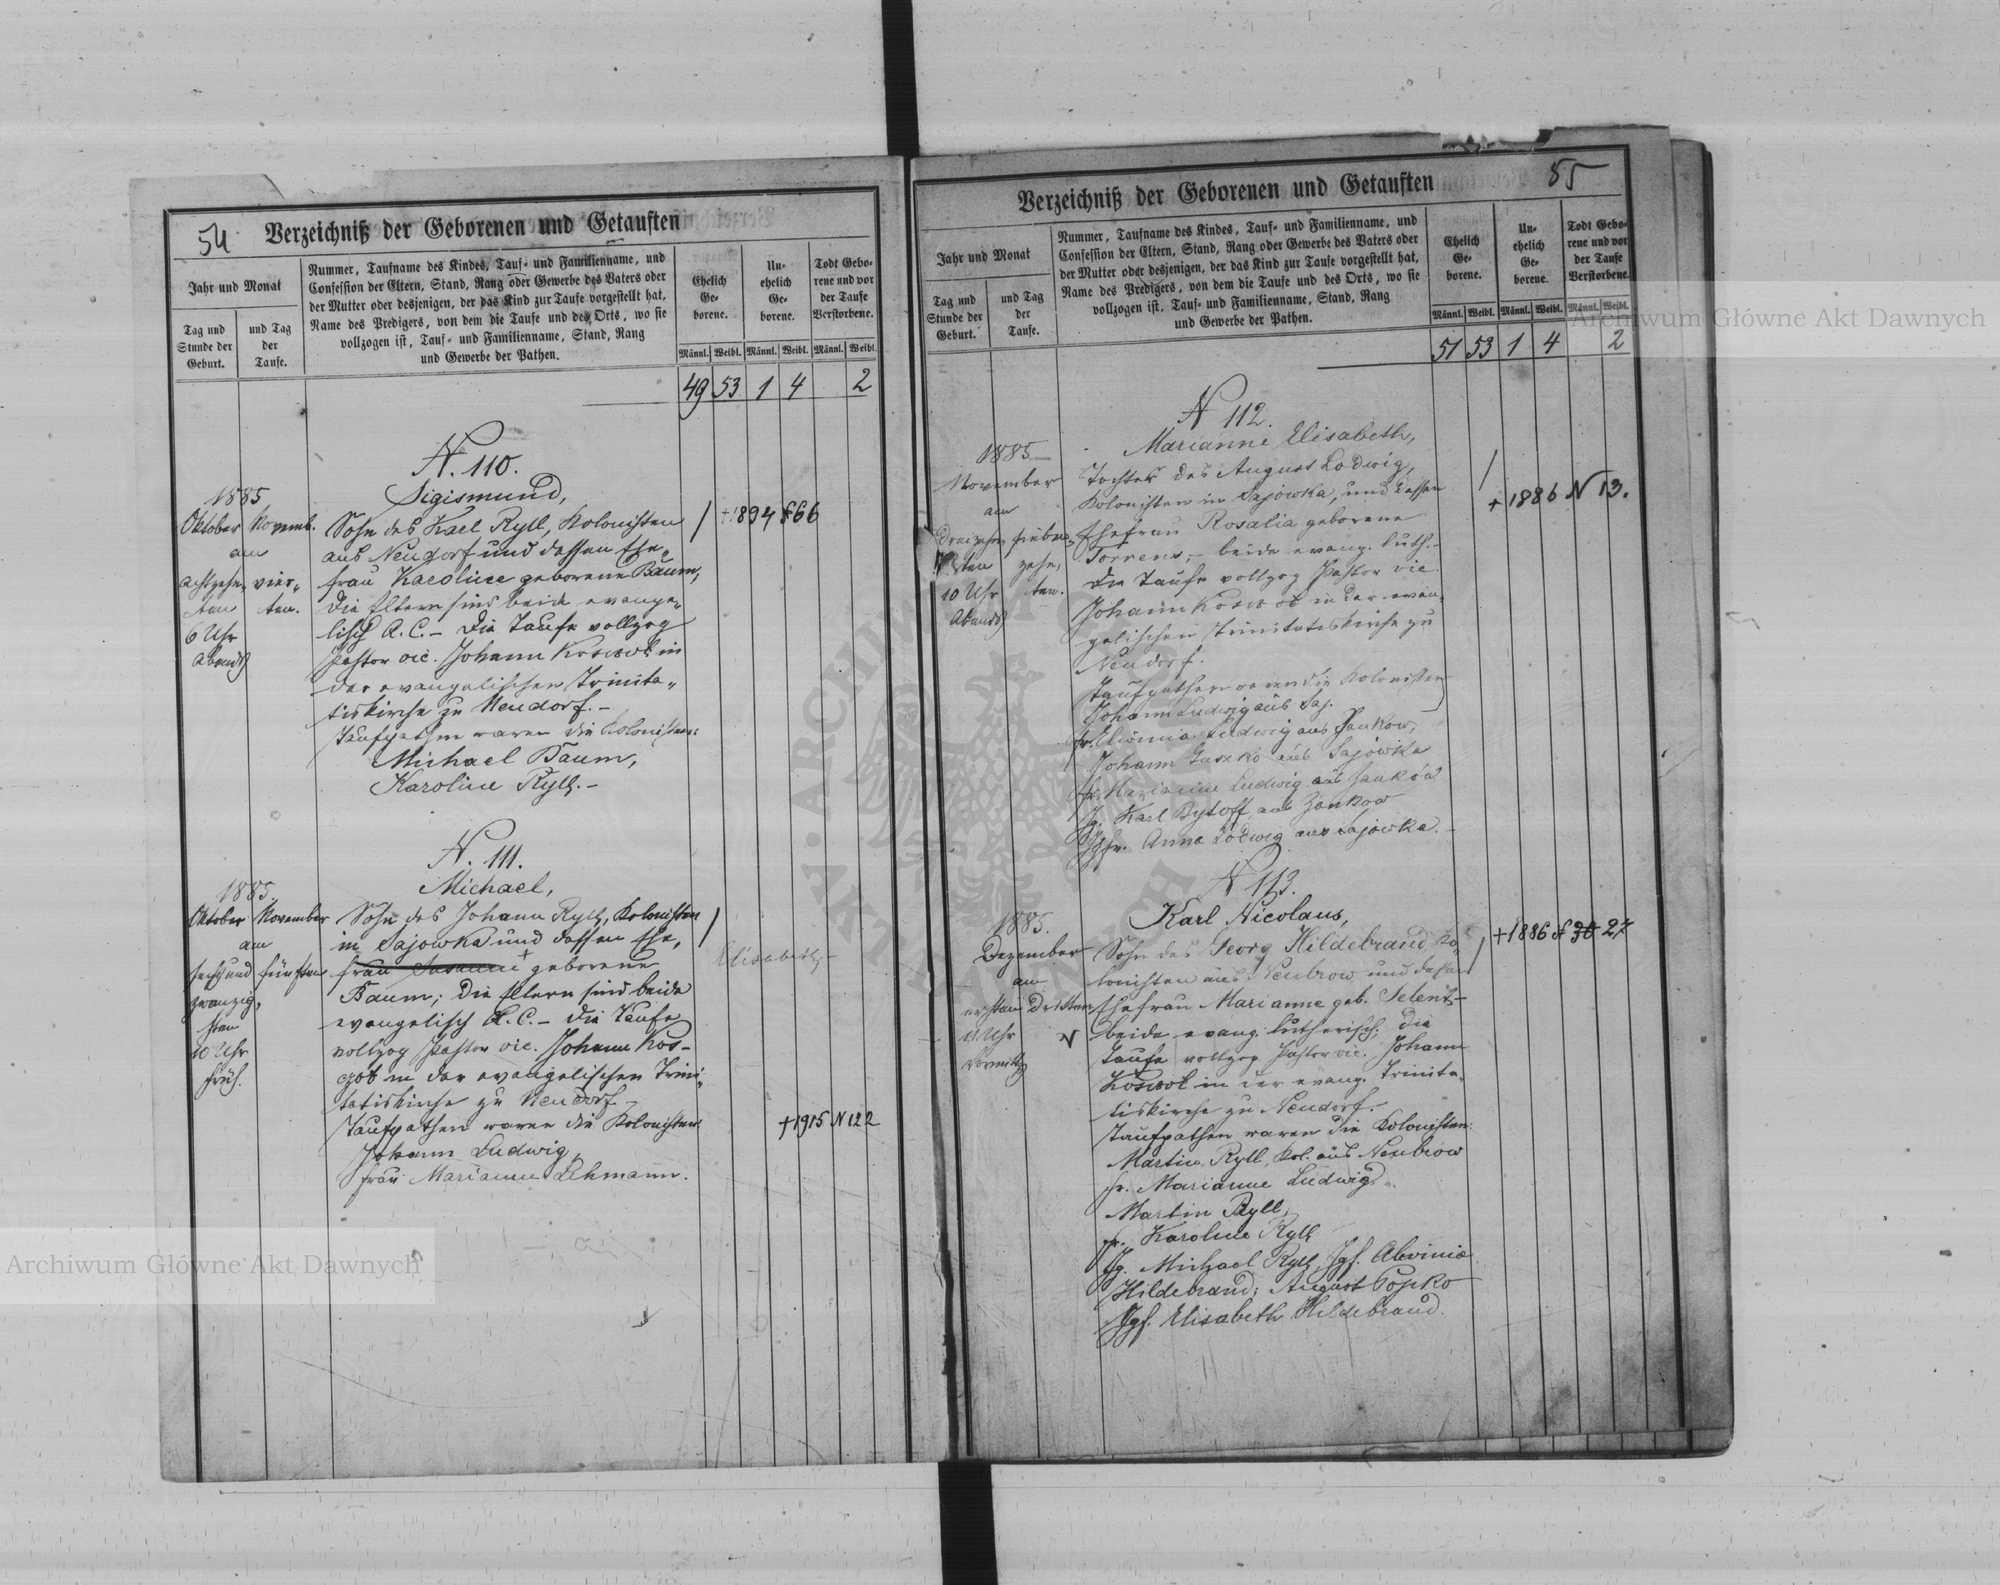 54
Verzeichniß der Geborenen und Getauften
Jahr und Monat
Tag und Stunde der Geburt.
und Tag der Taufe.
Nummer, Taufname des Kindes, Tauf- und Familienname, und
Confession der Eltern, Stand, Rang oder Gewerbe des Vaters oder
der Mutter oder desjenigen, der das Kind zur Taufe vorgestellt hat,
Name des Predigers, von dem die Taufe und des Orts, wo sie
vollzogen ist, Tauf- und Familienname, Stand, Rang
und Gewerbe der Pathen.
Ehelich Ge-borene.
Un-ehelich Ge-borene.
Todt Gebo-rene und vor der Taufe Verstorbene.
Männl. Weibl. Männl. Weibl. Männl. Weibl.
49 53 1 4 2
N. 110.
Sigismund,
1885
Oktober Novemb.
am
achtzehn- vier-
ten ten.
6 Uhr
Abends
Sohn des Karl Ryll, Kolonisten
aus Neudorf und dessen Ehe-
frau Karoline geborene Baum,
die Eltern sind beide evange-
lisch A. C. – Die Taufe vollzog
Pastor vic. Johann Koswol in
der evangelischen Trinita-
tiskirche zu Neudorf. –
Taufpathen waren die Kolonisten:
Michael Baum,
Karoline Ryll. –
+ 1894 N 66
N. 111.
Michael,
1885
Oktober November
am
sechsund fünften
zwanzig-
sten
10 Uhr
früh.
Sohn des Johann Ryll, Kolonisten
in Sajowka und dessen Ehe-
frau Susanne + geborene
Baum; die Eltern sind beide
evangelisch A. C. – Die Taufe
vollzog Pastor vic. Johann Kos-
wol in der evangelischen Trini-
tatiskirche zu Neudorf. –
Taufpathen waren die Kolonisten
Johann Ludwig,
Frau Marianne Lehmann.
Elisabeth, –
+ 1915 N 122
55
Verzeichniß der Geborenen und Getauften
Jahr und Monat
Tag und Stunde der Geburt.
und Tag der Taufe.
Nummer, Taufname des Kindes, Tauf- und Familienname, und
Confession der Eltern, Stand, Rang oder Gewerbe des Vaters oder
der Mutter oder desjenigen, der das Kind zur Taufe vorgestellt hat,
Name des Predigers, von dem die Taufe und des Orts, wo sie
vollzogen ist, Tauf- und Familienname, Stand, Rang
und Gewerbe der Pathen.
Ehelich Ge-borene.
Un-ehelich Ge-borene.
Todt Gebo-rene und vor der Taufe Verstorbene.
Männl. Weibl. Männl. Weibl. Männl. Weibl.
51 53 1 4 2
N 112.
Marianne Elisabeth,
1885
November
am
10 Uhr
Abends
Tochter des August Lodwig,
Kolonisten in Sajówka, und dessen
Ehefrau Rosalia geborene
Torrens, – beide evang. luth. –
Die Taufe vollzog Pastor vic.
Johann Koswol in der evan-
gelischen Trinitatiskirche zu
Neudorf.
Taufpathen waren die Kolonisten
Johann Ludwig aus Saj.
Ludwig aus Jankow,
Johann aus Sajówka
fr. Marianne Ludwig aus Janków
Jg. Karl Bytoff aus Jankow
Jgfr. Anna Lodwig aus Sajowka. –
+ 1886 N 13.
N 113.
Karl Nicolaus,
1885.
Dezember
am
ersten dritten
11 Uhr
Vormittg
Sohn des Georg Hildebrand, Ko-
lonisten aus Neubrow und dessen
Ehefrau Marianne geb. Selent –
beide evang. lutherisch; die
Taufe vollzog Pastor vic. Johann
Koswol in der evang. Trinita-
tiskirche zu Neudorf. –
Taufpathen waren die Kolonisten:
Martin Ryll, Kol. aus Neubrow
fr. Marianne Ludwig
Martin Ryll,
fr. Karoline Ryll
Jg. Michael Ryll, Jgf. Alwinia
Hildebrand; August Popko
Jgf. Elisabeth Hildebrand.
+ 1886 N 30 27
Archiwum Główne Akt Dawnych
Archiwum Główne Akt Dawnych